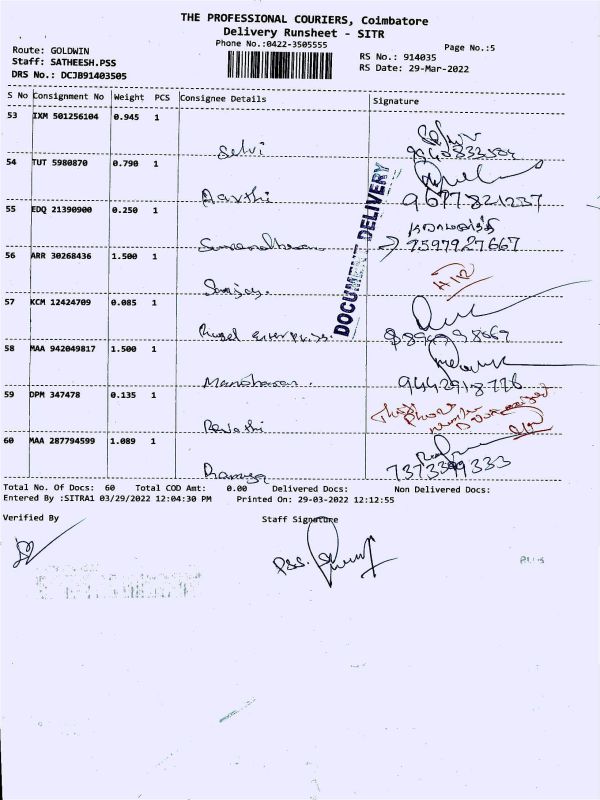 THE PROFESSIONAL COURIERS, Coimbatore
Delivery Runsheet - SITR
Phone No.:0422-3505555
Page No.:5
Route: GOLDWIN
Staff: SATHEESH.PSS
DRS No.: DCJB91403505
RS No.: 914035
RS Date: 29-Mar-2022
S No Consignment No Weight PCS Consignee Details Signature
53 IXM 501256104 0.945 1
Selvi
54 TUT 5980870 0.790 1
Aarthi 9677821237
55 EDQ 21390900 0.250 1
7597927667
56 ARR 30268436 1.500 1
Sanjay.
57 KCM 12424709 0.085 1
58 MAA 942049817 1.500 1
Manoharan. 9442918776
59 DPM 347478 0.135 1
Revathi
60 MAA 287794599 1.089 1
7373399333
DOCUMENT DELIVERY
Total No. Of Docs: 60 Total COD Amt: 0.00 Delivered Docs: Non Delivered Docs:
Entered By :SITRA1 03/29/2022 12:04:30 PM Printed On: 29-03-2022 12:12:55
Verified By Staff Signature
PSS.